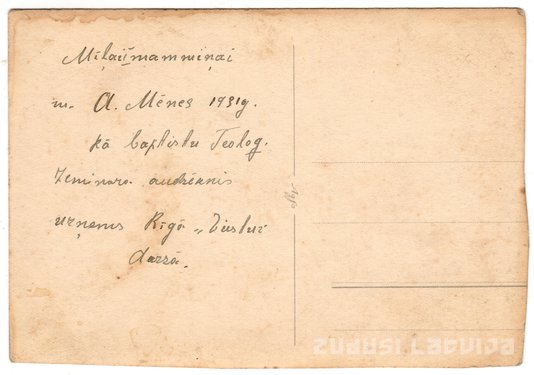 Mīļai māmmiņai
m. A. Mēnes 1931g.
kā baptistu Teolog.
Zemināra audzēknis
uzņems Rīgā „Viestur
dārzā.
zudusi latvija